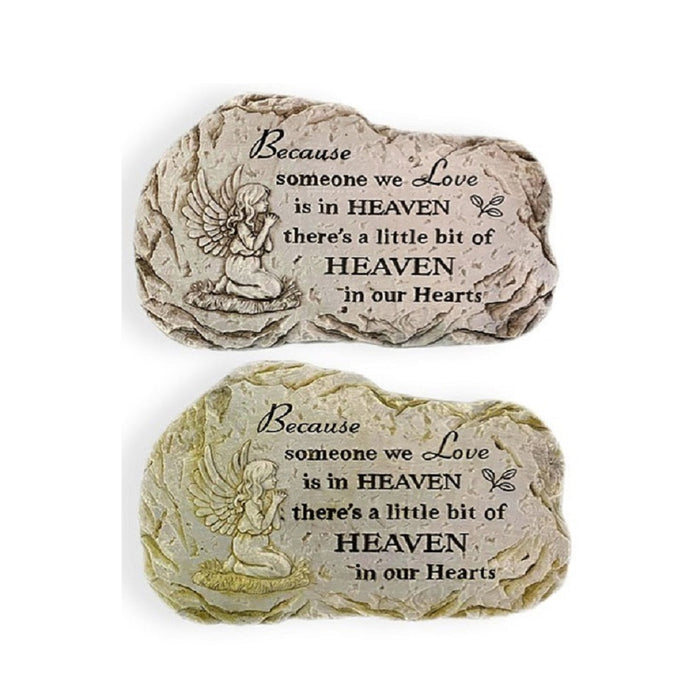 Because
someone we Love
is in HEAVEN
there's a little bit of
HEAVEN
in our Hearts
Because
someone we Love
is in HEAVEN
there's a little bit of
HEAVEN
in our Hearts